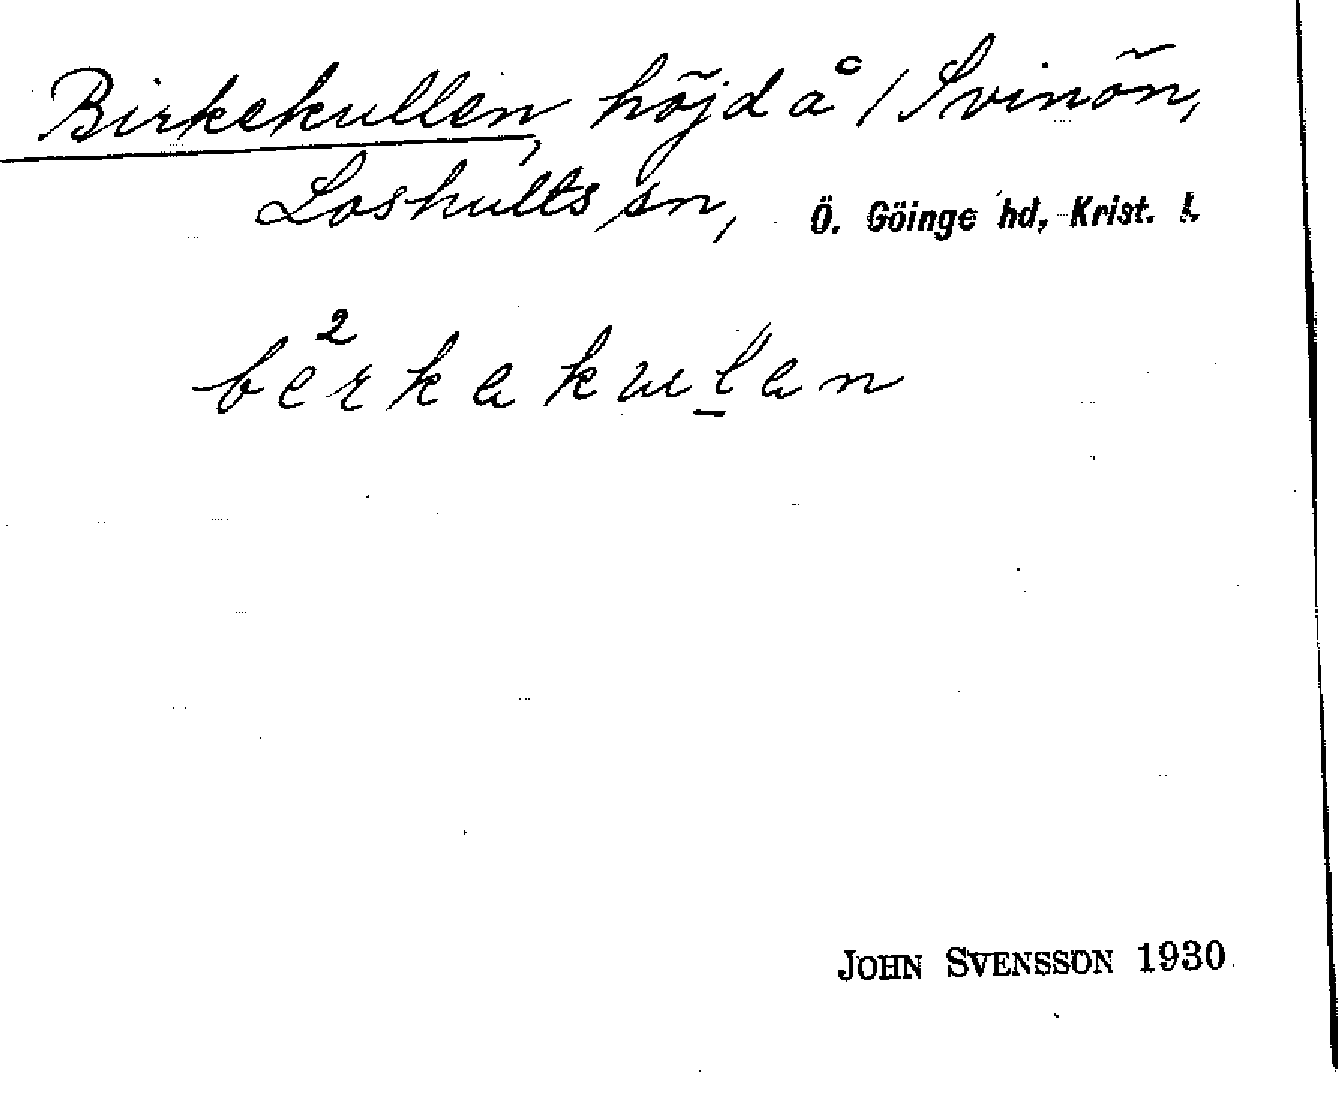 Birkekullen, höjd å / Svinön,
Loshults sn, Ö. Göinge hd, Krist. l.
be2rkakulan
JOHN SVENSSON 1930